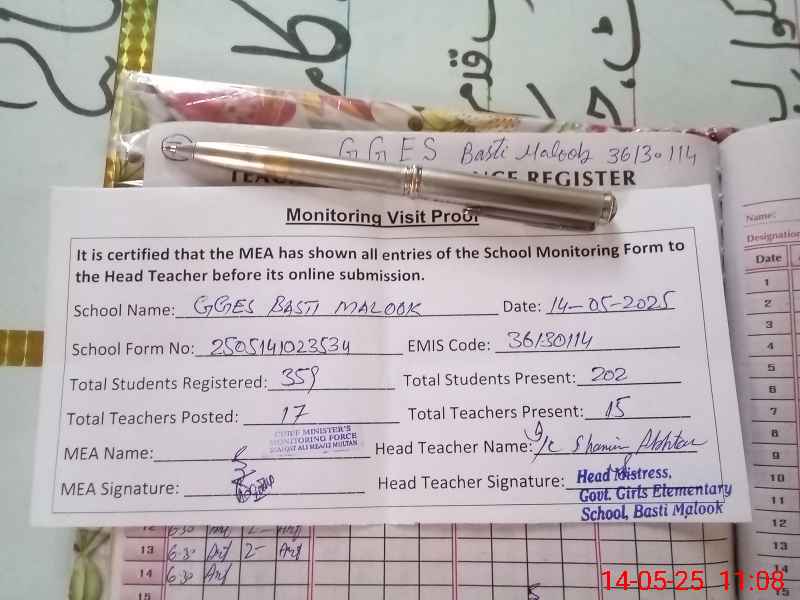 کام
قلم
GGES Basti Malook 36130114
NCE REGISTER
Monitoring Visit Proof
It is certified that the MEA has shown all entries of the School Monitoring Form to
the Head Teacher before its online submission.
School Name: GGES BASTI MALOOK Date: 14-05-2025
School Form No: 2505141023534 EMIS Code: 36130114
Total Students Registered: 359 Total Students Present: 202
Total Teachers Posted: 17 Total Teachers Present: 15
CHIEF MINISTER'S
MONITORING FORCE
MEA Name: Head Teacher Name: I/c Shamim Akhtar
MEA Signature: Head Teacher Signature:
Head Mistress,
Govt. Girls Elementary
School, Basti Malook
Name:
Designation
Date
1
2
3
4
5
6
7
8
9
10
11
12
13
14
15
12 6:30
13 6:30 Arf 2- Arf
14 6:30 Arf
15
14-05-25 11:08